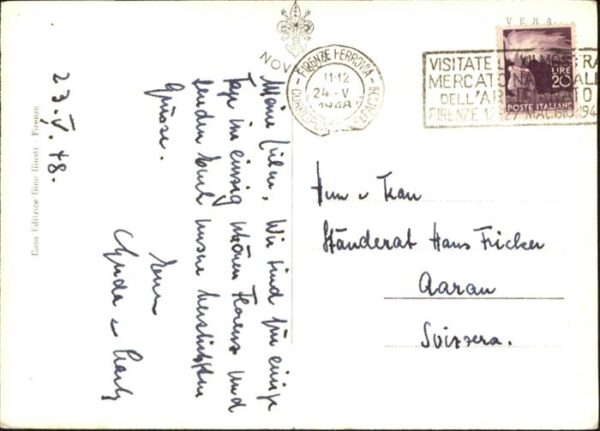 VERA
NOV
FIRENZE FERROVIA
11-12
24-V
1948
VISITATE LA XII MOSTRA
MERCATO NAZIONALE
DELL'ARTIGIANATO
FIRENZE 27 MAGGIO 194
LIRE
20
POSTE ITALIANE
23.V.48.
Meine Lieben, Wir sind für einige
Tage im einzig schönen Florenz und
senden Euch unsere herzlichsten
Grüsse.
Eure
Herrn u Frau
Ständerat Hans Fricker
Aarau
Svizzera.
Casa Editrice Giusti - Firenze